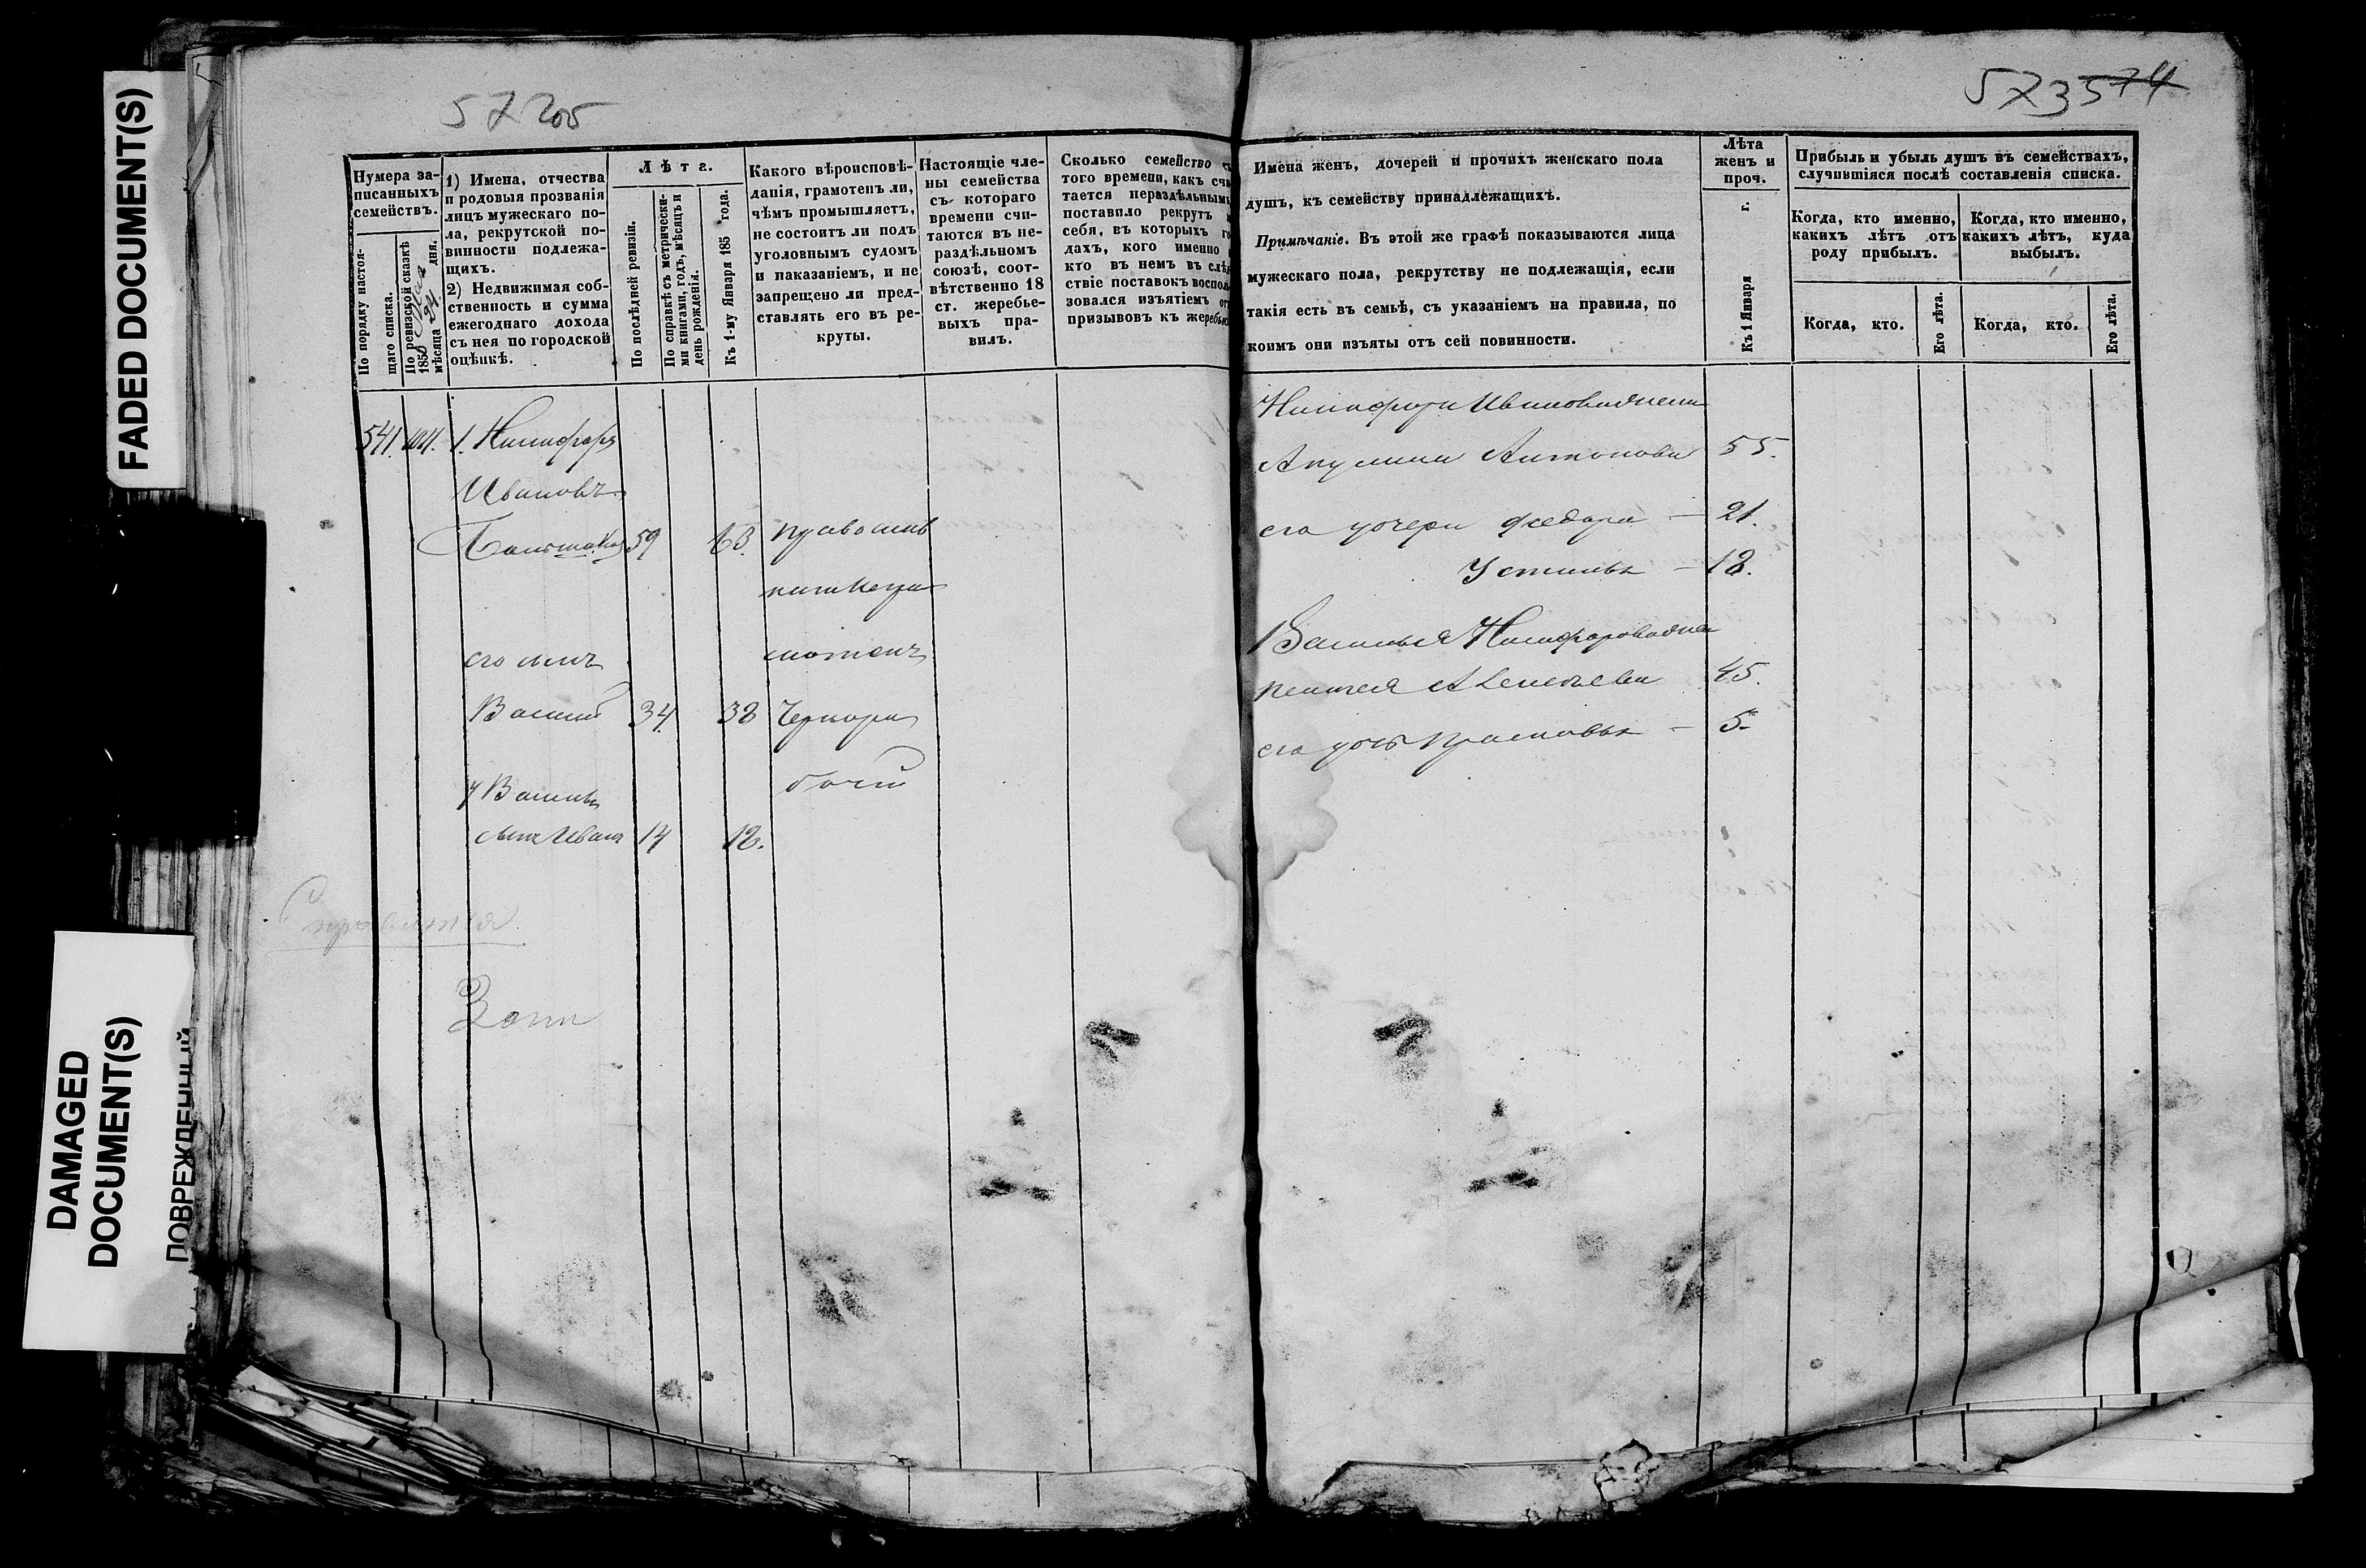 FADED DOCUMENT(S)
DAMAGED
DOCUMENT(S)
ПОВРЕЖДЕННЫЙ
57205
573574
Нумера за-
писанныхъ
семействъ.
По порядку настоя-
щаго списка.
По ревизской сказкѣ
1850
мѣсяца 24. дня.
1) Имена, отчества
и родовыя прозванія
лицъ мужескаго по-
ла, рекрутской по-
винности подлежа-
щихъ.
2) Недвижимая соб-
ственность и сумма
ежегоднаго дохода
съ нея по городской
оцѣнкѣ.
Лѣта.
По послѣдней ревизіи.
По справкѣ съ метрически-
ми книгами, годъ, мѣсяцъ и
день рожденія.
Къ 1-му Января 185 года.
Какого вѣроисповѣ-
данія, грамотенъ ли,
чѣмъ промышляетъ,
не состоитъ ли подъ
уголовнымъ судомъ
и наказаніемъ, и не
запрещено ли пред-
ставлять его въ ре-
круты.
Настоящіе чле-
ны семейства
съ котораго
времени счи-
таются въ не-
раздѣльномъ
союзѣ, соот-
вѣтственно 18
ст. жеребье-
выхъ пра-
вилъ.
Сколько семейство съ
того времени, какъ счи
тается нераздѣльнымъ
поставило рекрутъ
себя, въ которыхъ го
дахъ, кого именно
кто въ немъ въ слѣд
ствіе поставокъ воспол
зовался изъятіемъ от
призывовъ къ жеребью
541. 1. Никифоръ
Ивановъ
59 63. православ
его сынъ
мотенъ
Василій 34. 38 Чернора
у Василья
бочій
сынъ Иванъ 14 18.
Имена женъ, дочерей и прочихъ женскаго пола
душъ, къ семейству принадлежащихъ.
Примѣчаніе. Въ этой же графѣ показываются лица
мужескаго пола, рекрутству не подлежащія, если
такія есть въ семьѣ, съ указаніемъ на правила, по
коимъ они изъяты отъ сей повинности.
Лѣта
женъ и
проч.
Къ 1 Января г.
Прибыль и убыль душъ въ семействахъ,
случившіяся послѣ составленія списка.
Когда, кто именно,
какихъ лѣтъ отъ
роду прибылъ.
Когда, кто именно,
какихъ лѣтъ, куда
выбылъ.
Когда, кто.
Его лѣта.
Когда, кто.
Его лѣта.
Никифора Иванова жена
Акулина Антонова 55.
его дочери Федора — 21.
Устинья — 18.
Василья Никифорова
45.
его дочь Прасковья — 5.